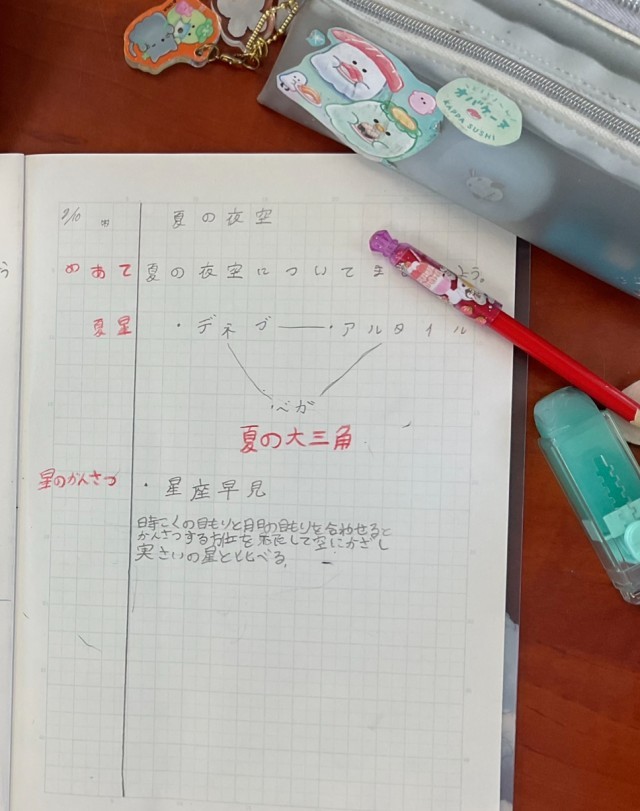 オバケーヌ
KAPPA SUSHI
9/10 夏の夜空
めあて 夏の夜空についてま よう。
夏星 ・デネブ——・アルタイル
・ベガ
夏の大三角
星のかんさつ ・星座早見
時こくの目もりと月日の目もりを合わせると
かんさつする方位を下にして空にかざし
実さいの星と比べる。
う